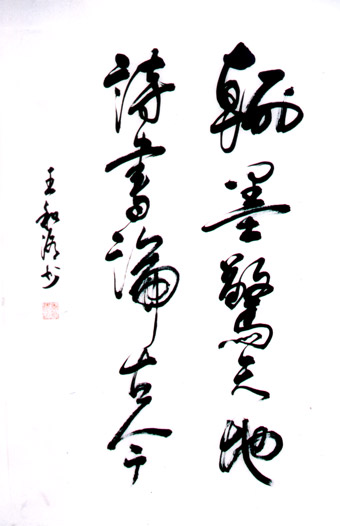 翰墨驚天地
詩書論古今
王和源书